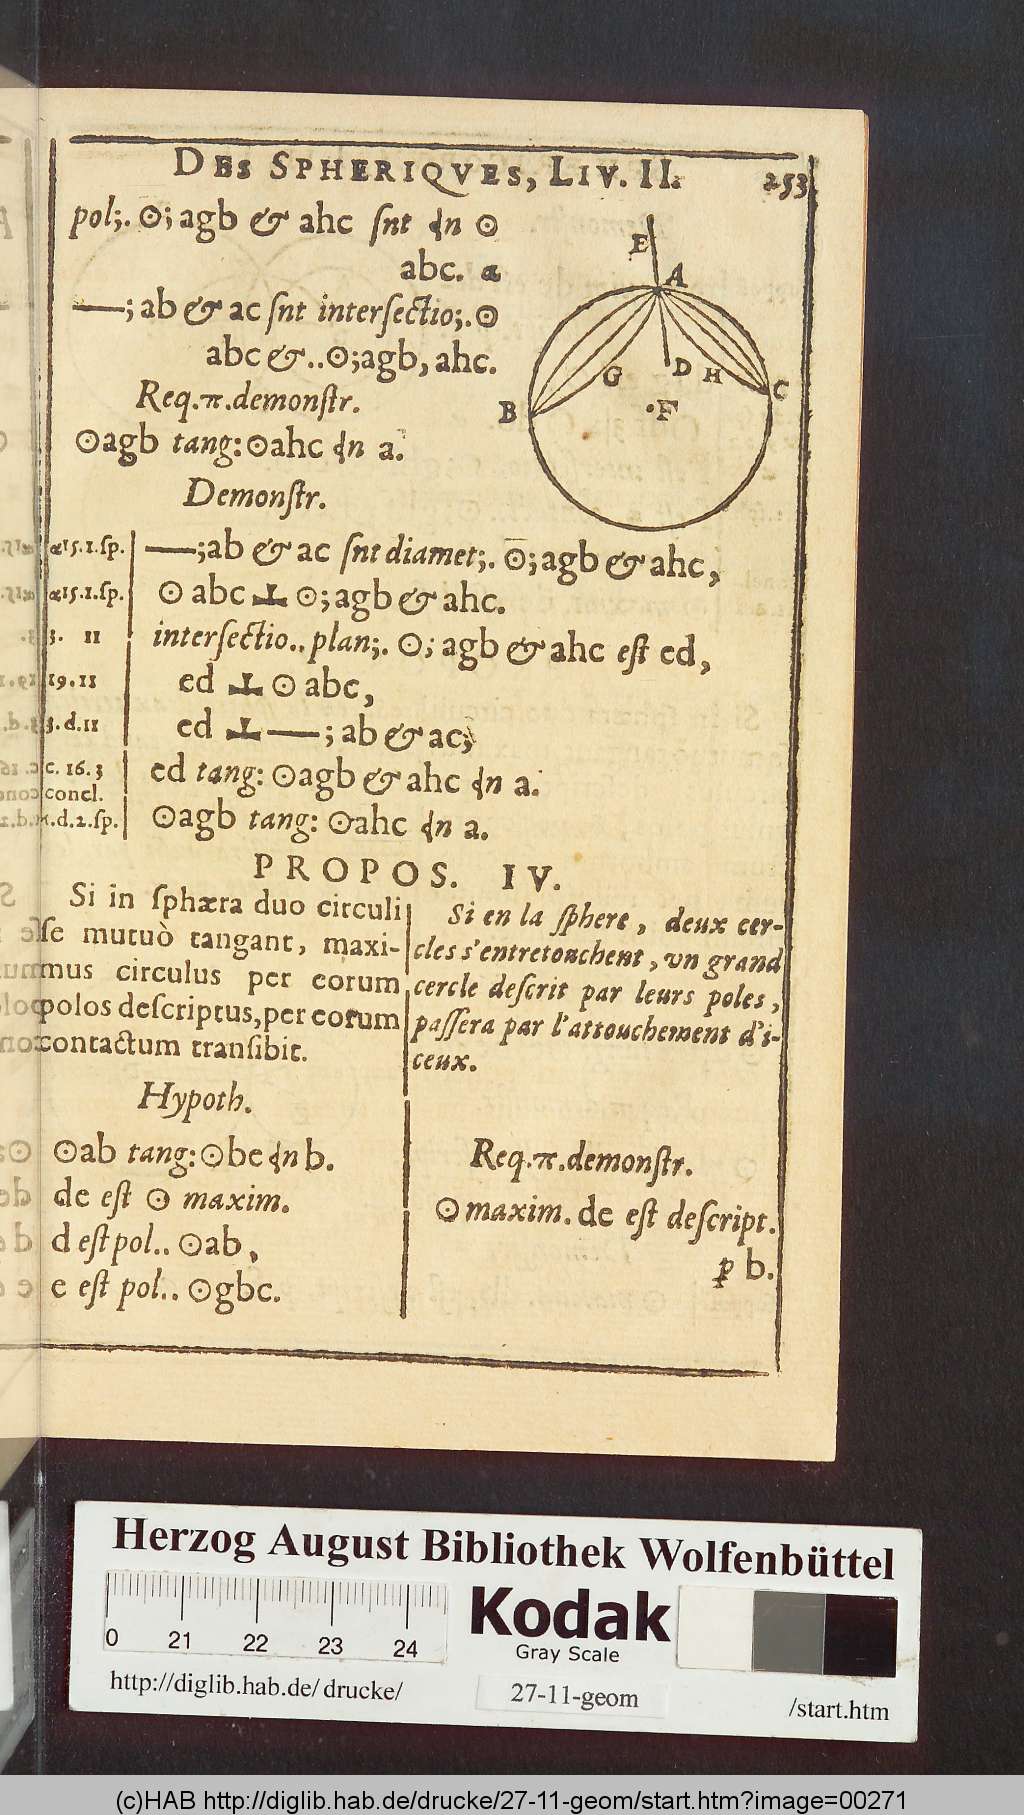 DES SPHERIQVES, LIV. II. 253
pol;. ⊙; agb & ahc ſnt
abc. a
E
A
—; ab & ac ſnt interſectio;. ⊙
abc &..⊙;agb, ahc.
G D H C
Req.π.demonſtr.
B F
⊙agb tang:⊙ahc
Demonſtr.
α15.1.ſp. —;ab & ac ſnt diamet;. ⊙;agb & ahc,
α15.1.ſp. ⊙ abc ⊥ ⊙; agb & ahc.
3. 11 interſectio.. plan;. ⊙; agb & ahc eſt ed,
19.11 ed ⊥ ⊙ abc,
3.d.11 ed ⊥ —; ab & ac,
c. 16.3 ed tang: ⊙agb & ahc
concl.
.d.2.ſp. ⊙agb tang: ⊙ahc
PROPOS. IV.
Si in ſphæra duo circuli
ſe mutuò tangant, maxi-
mus circulus per eorum
polos deſcriptus, per eorum
contactum tranſibit.
Si en la ſphere, deux cer-
cles s'entretouchent, vn grand
cercle deſcrit par leurs poles,
paſſera par l'attouchement d'i-
ceux.
Hypoth.
⊙ab tang:⊙be
de eſt ⊙ maxim.
d eſt pol.. ⊙ab,
e eſt pol.. ⊙gbc.
Req.π.demonſtr.
⊙ maxim. de eſt deſcript.
ꝑ b.
Herzog August Bibliothek Wolfenbüttel
0 21 22 23 24
Kodak
Gray Scale
http://diglib.hab.de/drucke/ 27-11-geom /start.htm
(c)HAB http://diglib.hab.de/drucke/27-11-geom/start.htm?image=00271